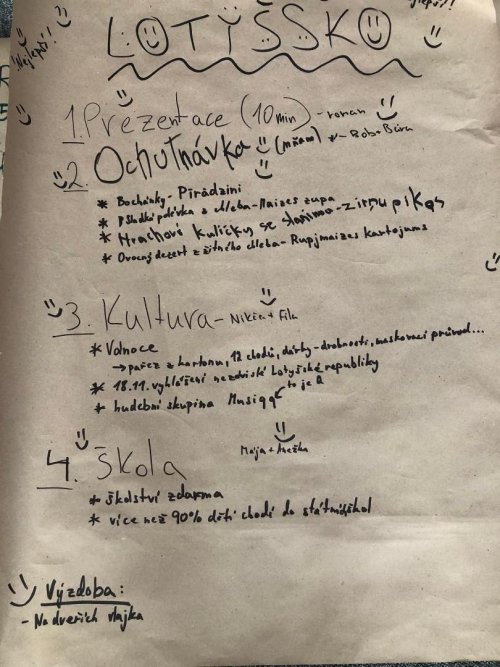 Nejlepší!!
LOTYŠSKO
1. Prezentace (10min) - roman
2. Ochutnávka (mňam) - Bob + Bára
* Bochánky - Pīrādziņi
* Sladká polévka z chleba - Maizes zupa
* Hrachové kuličky se slaninou - zirņu pikas
* Ovocný dezert z žitného chleba - Rupjmaizes kartojums
3. Kultura - Nikča + Fíla
* Vánoce
→ pařez z kartonu, 12 chodů, dárky - drobnosti, maskovací průvod...
* 18.11. vyhlášení nezávislé Lotyšské republiky
* hudební skupina Musiqq ← to je Q
4. Škola
Mája + Anežka
* školství zdarma
* více než 90% dětí chodí do státních škol
Výzdoba:
- Na dveřích vlajka